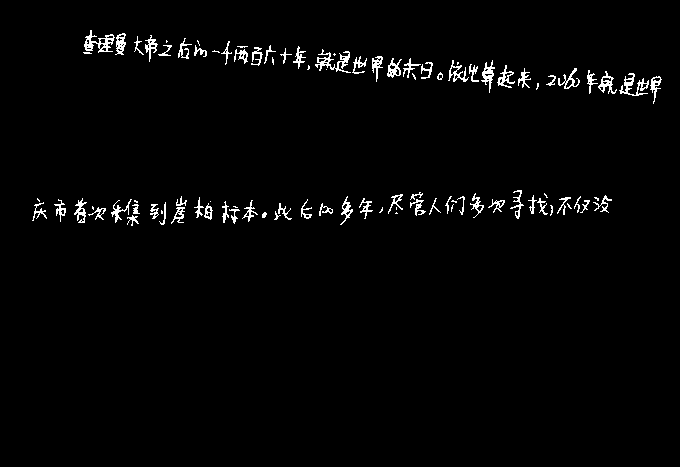 查理曼大帝之后的一千两百六十年,就是世界的末日。依此算起来,2060年就是世界
庆市首次采集到崖柏标本。此后100多年,尽管人们多次寻找,不仅没